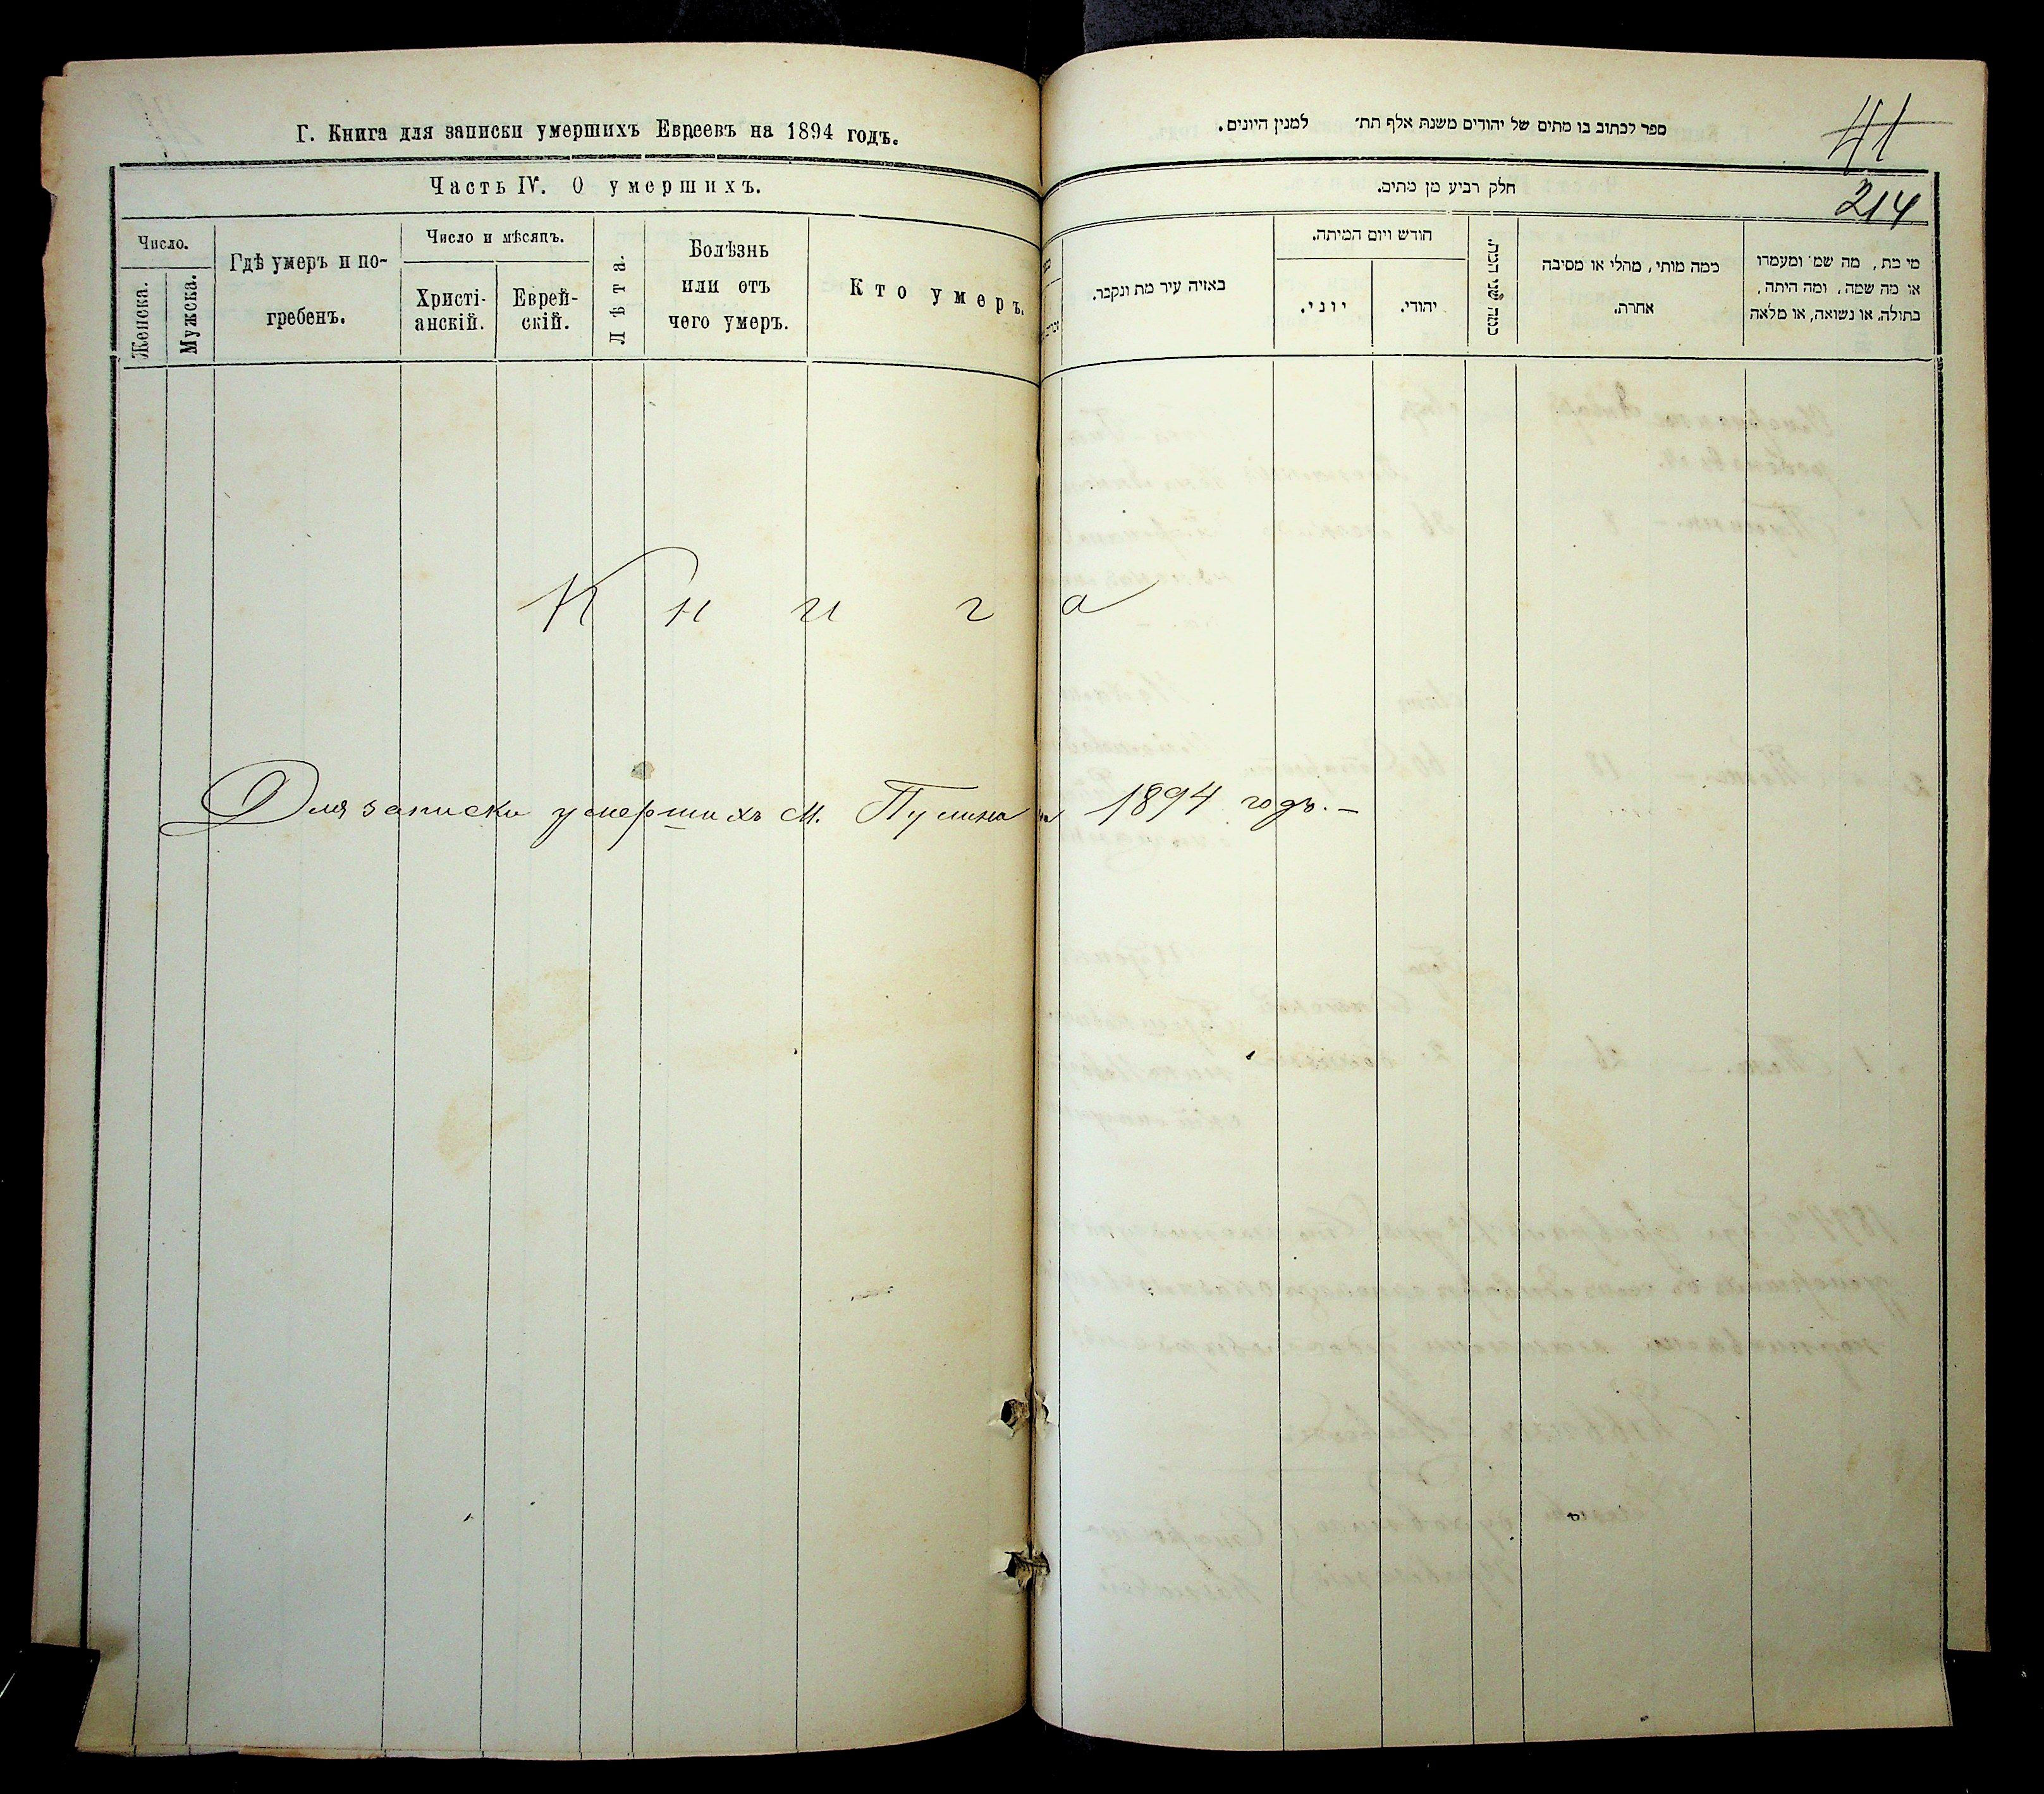 Г. Книга для записки умершихъ Евреевъ на 1894 годъ.
Часть IV. О умершихъ.
Число.
Женска.
Мужска.
Гдѣ умеръ и по-
гребенъ.
Число и мѣсяцъ.
Христі-
анскій.
Еврей-
скій.
Лѣта.
Болѣзнь
или отъ
чего умеръ.
Кто умеръ.
ספר לכתוב בו מתים של יהודים משנת אלף תת׳ למנין היונים.
41
214
חלק רביע מן מתים.
באזיה עיר מת ונקבר.
חודש ויום המיתה.
יוני.
יהודי.
כמה מותי, מהלי או מסיבה
אחרת.
מי מת, מה שמו ומעמדו
או מה שמה, ומה היתה,
בתולה, או נשואה, או מלאה
Книга
Для записки умершихъ м. Пумпяна на 1894 годъ.–